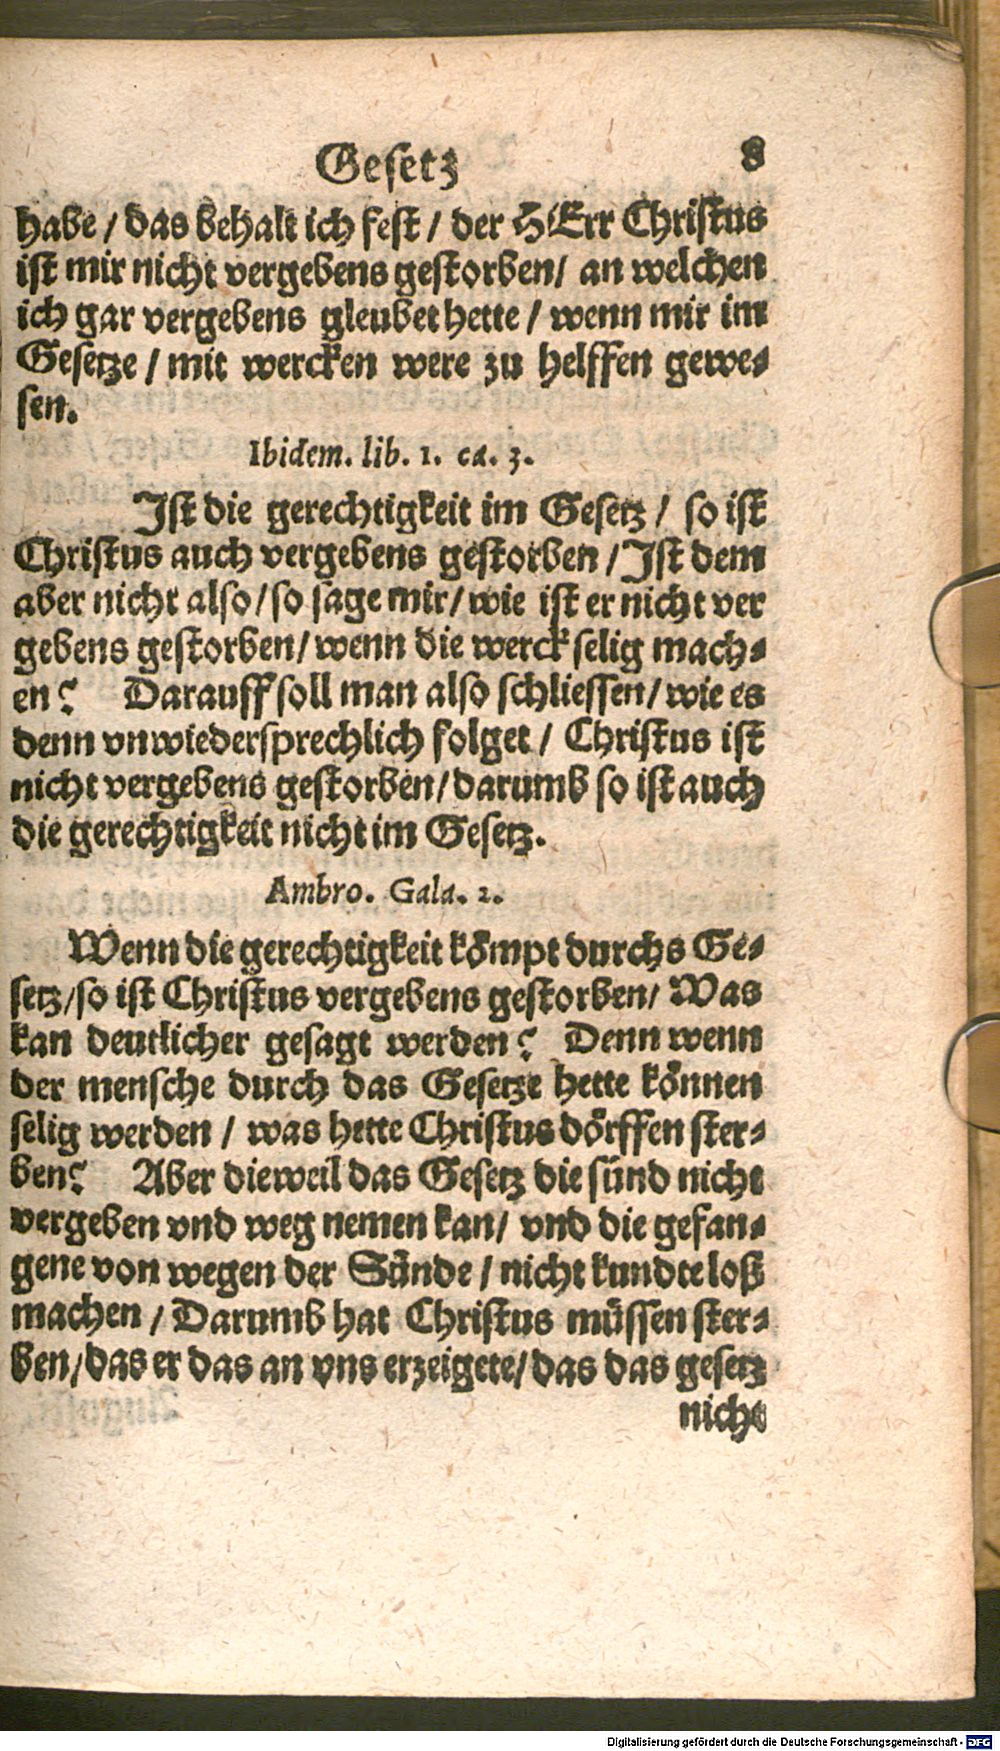 Gesetz 8
habe / das behalt ich fest / der HErr Christus
ist mir nicht vergebens gestorben / an welchen
ich gar vergebens gleubet hette / wenn mir im
Gesetze / mit wercken were zu helffen gewe-
sen.
Ibidem. lib. 1. ca. 3.
Ist die gerechtigkeit im Gesetz / so ist
Christus auch vergebens gestorben / Ist dem
aber nicht also / so sage mir / wie ist er nicht ver
gebens gestorben / wenn die werck selig mach-
en? Darauff soll man also schliessen / wie es
denn vnwiedersprechlich folget / Christus ist
nicht vergebens gestorben / darumb so ist auch
die gerechtigkeit nicht im Gesetz.
Ambro. Gala. 2.
Wenn die gerechtigkeit kömpt durchs Ge-
setz / so ist Christus vergebens gestorben / Was
kan deutlicher gesagt werden? Denn wenn
der mensche durch das Gesetze hette können
selig werden / was hette Christus dörffen ster-
ben? Aber dieweil das Gesetz die sünd nicht
vergeben vnd weg nemen kan / vnd die gefan-
gene von wegen der Sünde / nicht kundte loß
machen / Darumb hat Christus müssen ster-
ben / das er das an vns erzeigete / das das gesetz
nicht
Digitalisierung gefördert durch die Deutsche Forschungsgemeinschaft - DFG